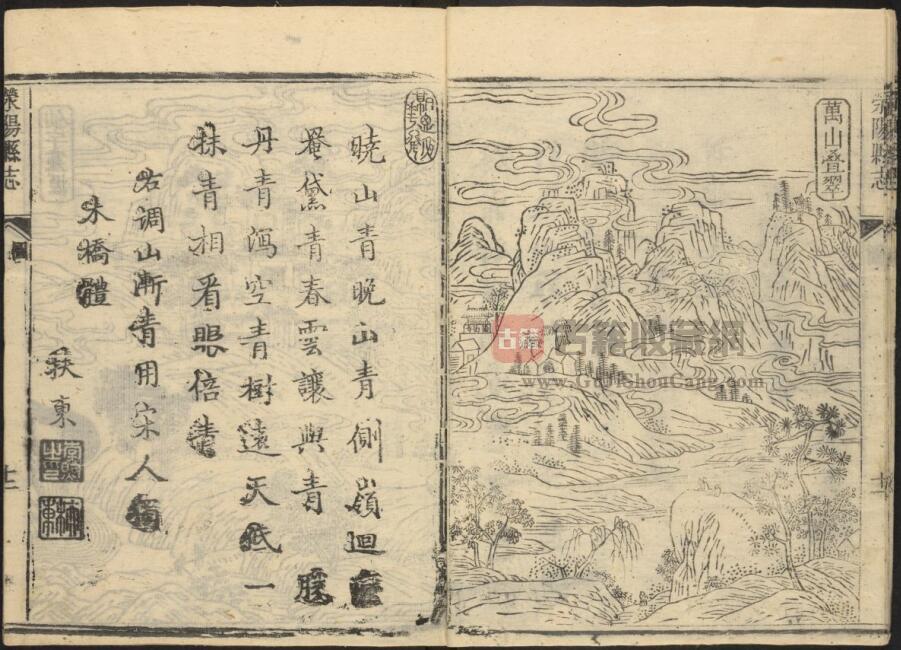 滎陽縣志
萬山疊翠
曉山青晚山青側嶺迴
罨黛青春雲讓與青
丹青瀉空青樹遠天低一
抹青相看眼倍青
右調山漸青用宋人獨
木橋體
東
滎陽縣志
圖
古籍
古籍收藏網
www.GuJiShouCang.com